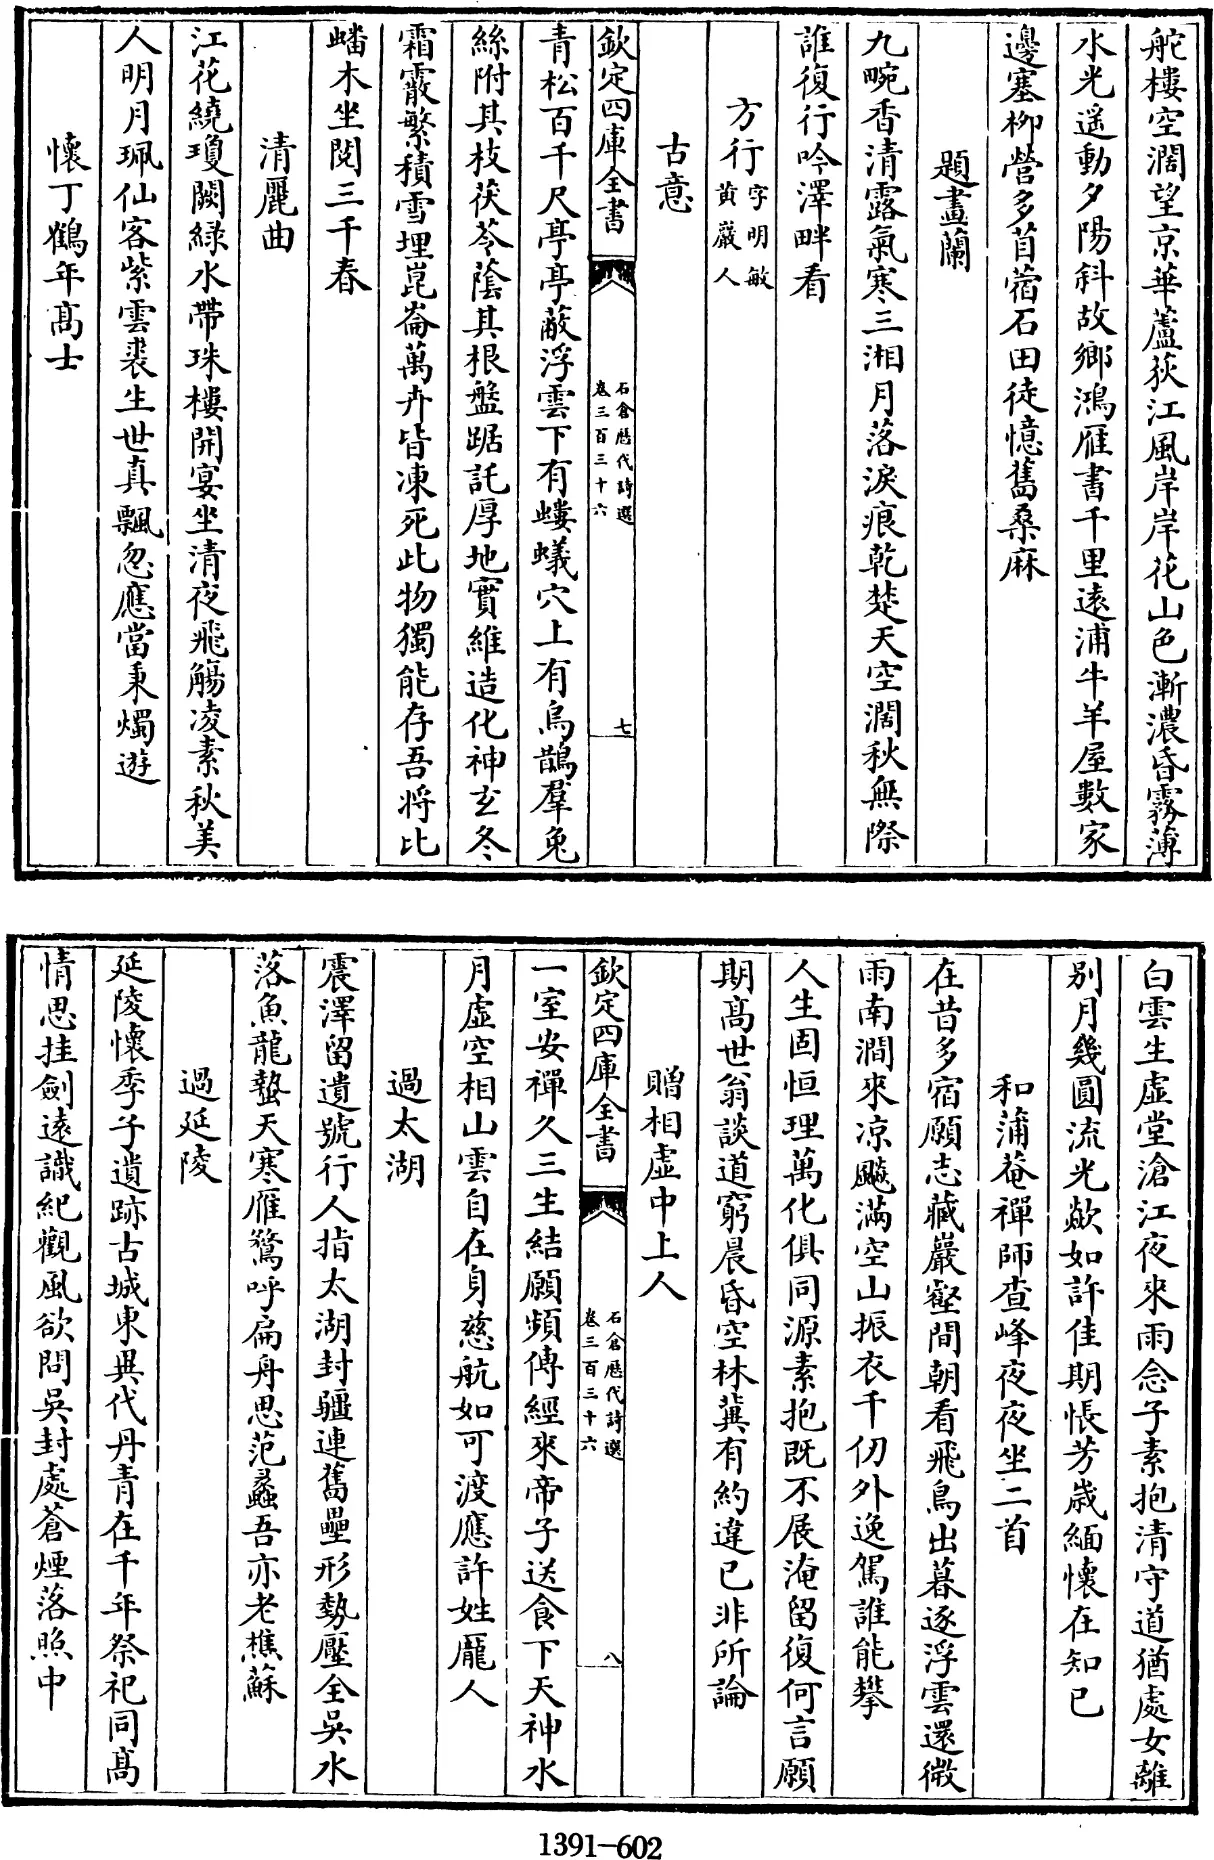 舵樓空濶望京華蘆荻江風岸岸花山色漸濃昏霧薄
水光遥動夕陽斜故鄉鴻雁書千里逺浦牛羊屋數家
邊塞柳營多苜蓿石田徒憶舊桑麻
題畫蘭
九畹香清露氣寒三湘月落淚痕乾楚天空濶秋無際
誰復行吟澤畔看
方行字明敏黄巖人
古意
欽定四庫全書
石倉歴代詩選
卷三百三十六
七
青松百千尺亭亭蔽浮雲下有螻蟻穴上有烏鵲羣兔
絲附其枝茯苓蔭其根盤踞託厚地實維造化神玄冬
霜霰繁積雪埋崑崙萬卉皆凍死此物獨能存吾將比
蟠木坐閲三千春
清麗曲
江花繞瓊闕緑水帶珠樓開宴坐清夜飛觴凌素秋美
人明月珮仙客紫雲裘生世真飄忽應當秉燭遊
懐丁鶴年髙士
白雲生虚堂滄江夜來雨念子素抱清守道猶處女離
别月幾圓流光歘如許佳期悵芳歳緬懐在知已
和蒲菴禪師查峰夜夜坐二首
在昔多宿願志藏巖壑間朝看飛鳥出暮逐浮雲還微
雨南澗來凉飈滿空山振衣千仞外逸駕誰能攀
人生固恒理萬化俱同源素抱既不展淹留復何言願
期髙世翁談道窮晨昏空林冀有約違已非所論
贈相虚中上人
欽定四庫全書
石倉歴代詩選
卷三百三十六
八
一室安禪久三生結願頻傳經來帝子送食下天神水
月虚空相山雲自在身慈航如可渡應許姓龐人
過太湖
震澤留遺號行人指太湖封疆連舊壘形勢壓全吳水
落魚龍蟄天寒雁鶩呼扁舟思范蠡吾亦老樵蘇
過延陵
延陵懐季子遺跡古城東異代丹青在千年祭祀同髙
情思挂劍逺識紀觀風欲問吳封處蒼煙落照中
1391-602